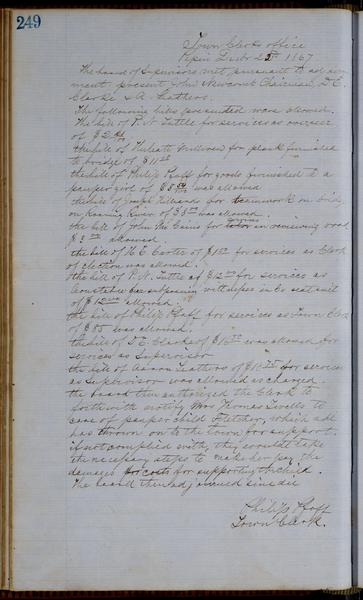 249
Town Clerks office
Pepin Decbr 25th 1867
The board of Supervisors met pursuant to adjourn
ment present John Newcomb Chairman, D.C.
Clarke & A. Feathers.
The following bills presented were allowed.
The bill of P. N. Tuttle for services as overseer
of $2.
the bill of for plank furnished
to bridge of $11
the bill of Philip Pfaff for goods furnished to a
pauper girl of $8 was allowed
the bill of Joseph for teamwork on bridge
on Roaring River of $3 was allowed.
the bill of John Mc Cains for services in reviewing road
$3 allowed.
the bill of H. C. Carter of $1 for services as Clerk
of election was allowed.
the bill of P. N. Tuttle of $12 for services as
Constable in
of $12 allowed.
the bill of Philip Pfaff for services as Town Clerk
of $85 was allowed.
the bill of D. C. Clarke of $10 was allowed for
services as Supervisor
the bill of Aaron Feathers of $11 for services
as Supervisor was allowed as charged.
the board then authorized the Clerk to
forthwith notify Mrs Thomas to
care of pauper child Fletcher, which she
has thrown on to the town for support.
if not complied with, they would take
the necessary steps to make her pay the
damages for costs for supporting the child.
The board then adjourned sine die
Philip Pfaff
Town Clerk.